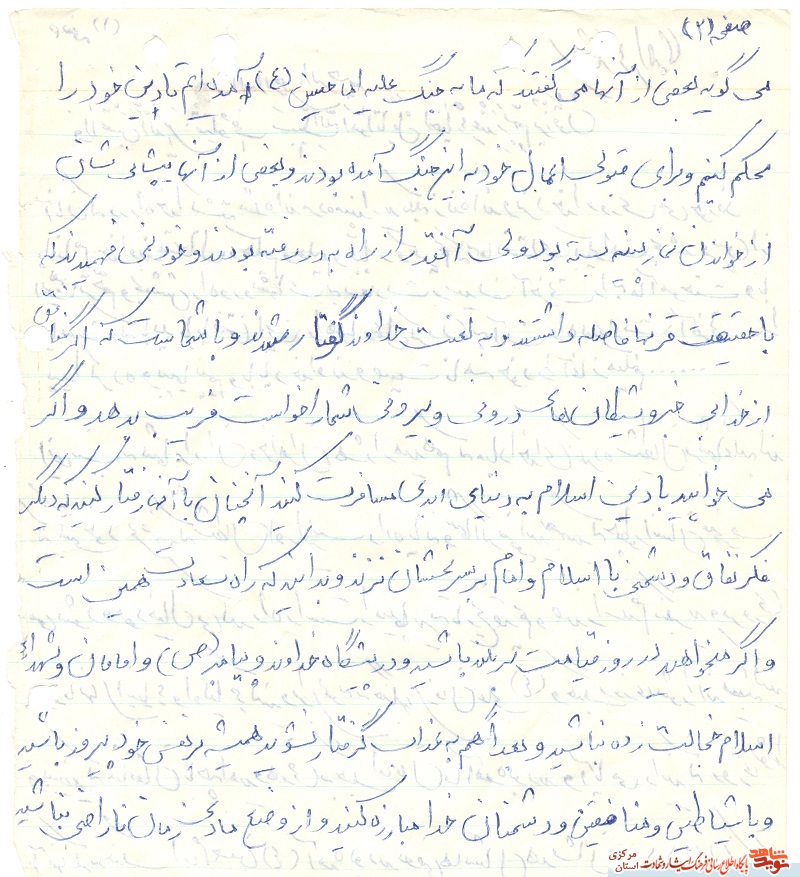 صفحه (۲)
می گوید بعضی از آنها می گفتند که ما به جنگ علیه امام حسین (ع) آمده ایم تا دین خود را
محکم کنیم و برای قبولی اعمال خود به این جنگ آمده بودند و بعضی از آنها پیشانی شان
از خواندن نماز پینه بسته بود ولی آنقدر از راه به در رفته بودند و خود نمی فهمیدند که
با حقیقت قرنها فاصله داشتند و به لعنت خداوند گرفتار شدند و با شماست که اگر منافق
از خدایی خبر و شیطان های درونی و بیرونی شما را خواست فریب بدهد و اگر
می خواهید با دین اسلام به دنیای ابدی مسافرت کنید آنچنان با آنها رفتار کنید که دیگر
فکر نفاق و دشمنی با اسلام و امام بر سر نحسشان نزند و بدانید که راه سعادت همین است
و اگر میخواهید در روز قیامت سربلند باشید و در پیشگاه خداوند و پیامبر (ص) و امامان و شهدای
اسلام خجالت زده نباشید و بعداً هم به عذاب گرفتار نشوید همیشه بر نفس خود پیروز باشید
و با شیاطین و منافقین و دشمنان خدا مبارزه کنید و از وضع مادی زمان ناراضی نباشید
نوید شاهد
پایگاه اطلاع رسانی فرهنگ ایثار و شهادت
استان مرکزی